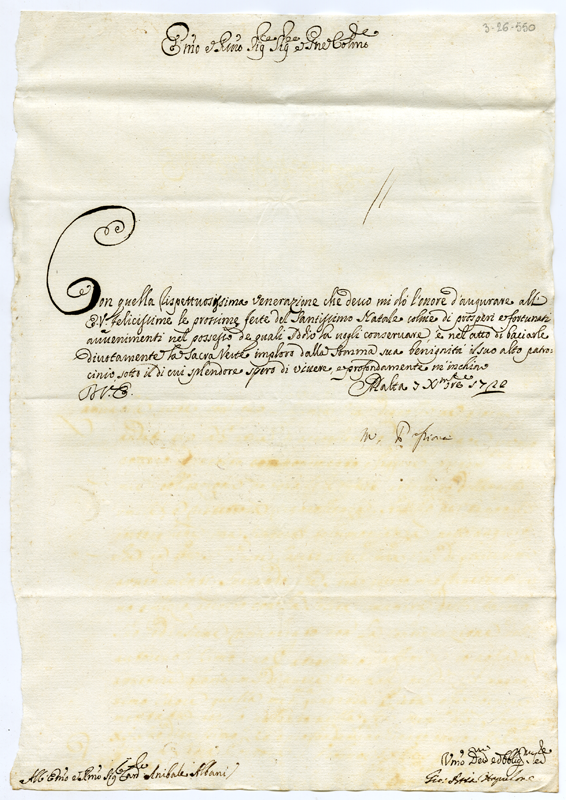 3-26-550
Emo e Rmo Sigre Sigre e Pne Colmo
Con quella rispettuosissima venerazione che devo mi dò l'onore d'augurare all'
E.V. felicissime le prossime feste del Santissimo Natale colme di prosperi e fortunati
avvenimenti nel possesso de quali Iddio la vogli conservare, e nel atto di baciarle
divotamente la Sacra Veste imploro dalla Somma sua benignità il suo alto patro
cinio sotto il di cui splendore spero di vivere, e profondamente m'inchino
D. V. E.
Malta 7 Xmbre 1720
Umo Devmo ed Obligmo
All Emo e Rmo Sig Card Anibale Albani